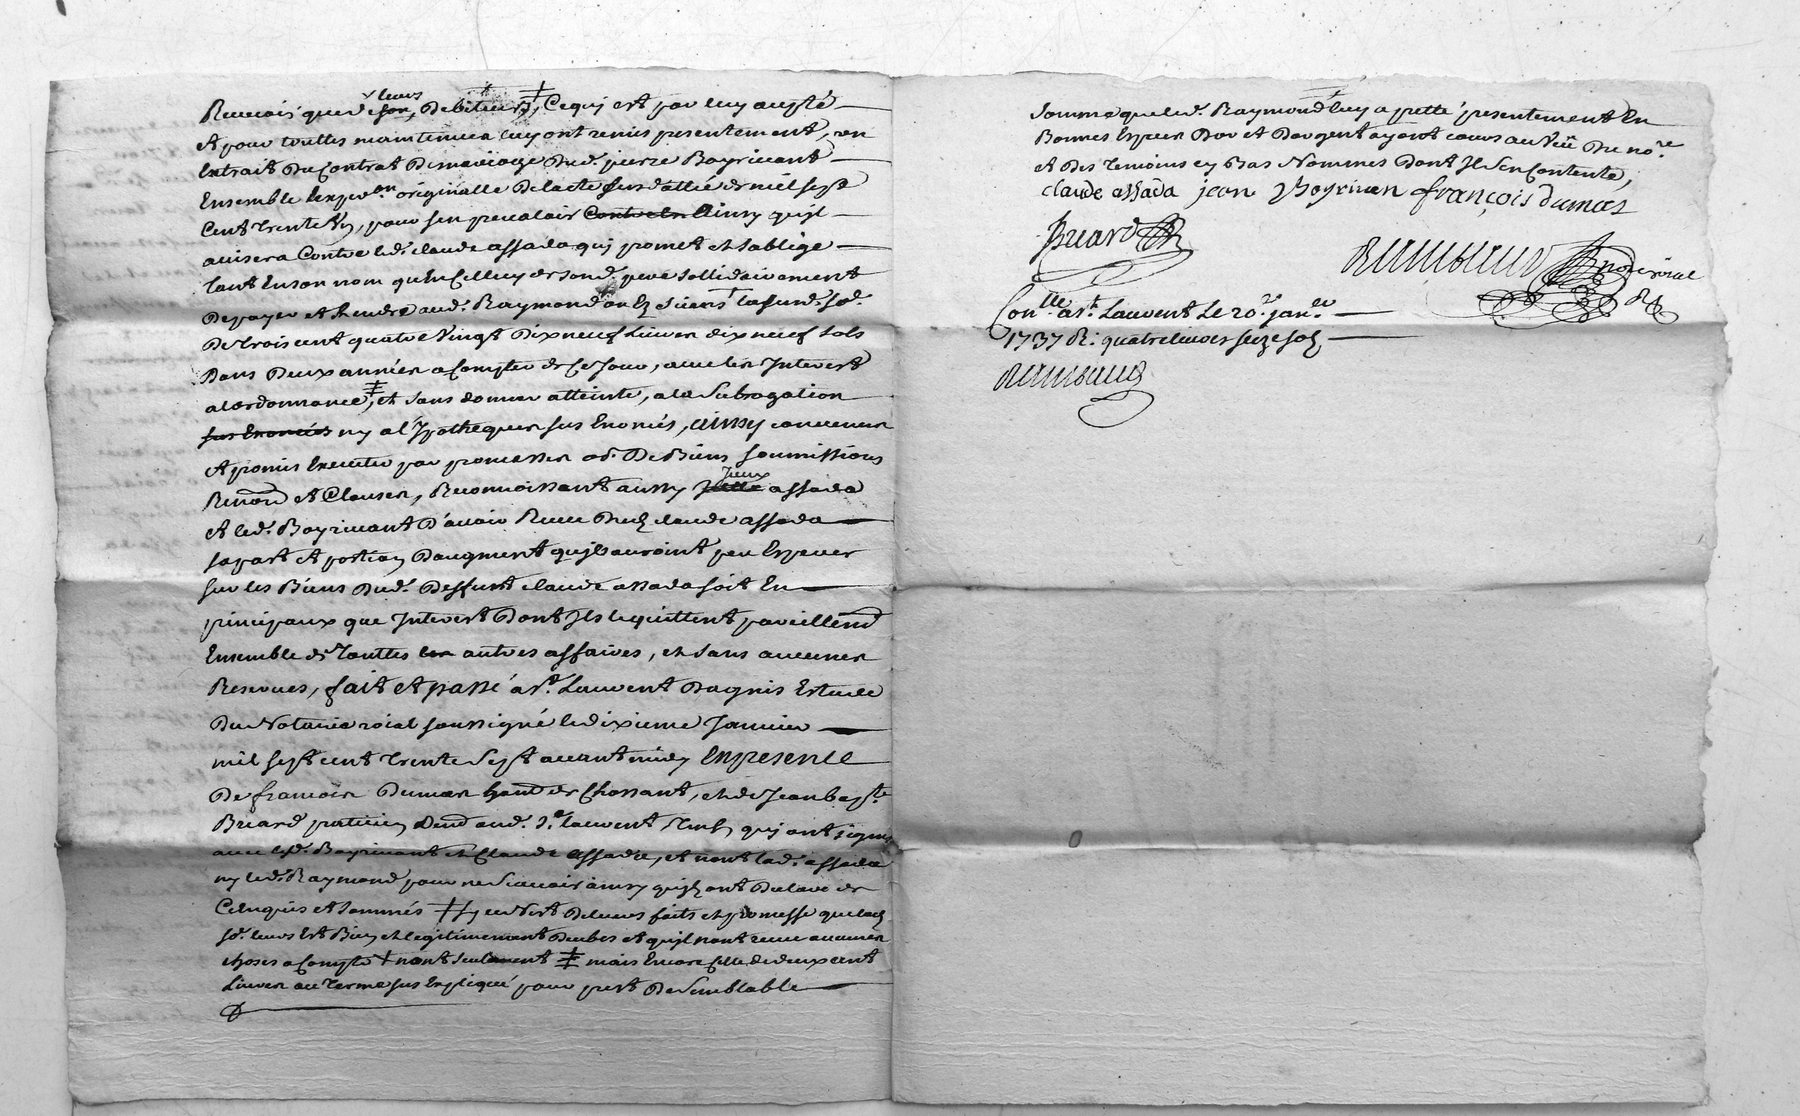 Recevoir que de leurs son, Debiteurs ‡, Ce quj est par luy acepté
Et pour touttes maintenues luy ont remis presentement, un
Extrait Du Contrat De mariage Dud. pierre Boyrivant
Ensemble lexpe.on originalle De lacte sus datté de mil sept
Cent trente , pour sen prevaloir Contre les Ainsy qujl
avisera Contre led. claude assada quj promet et soblige
tant En son nom qu'En celluy de sond. pere sollidairement
De payer et Rendre aud. Raymond ou Es Siens † lasusd. so.e
De trois cent quatre Vingt Dix neuf Livres dix neuf sols
Dans Deux années a Compter de Ce Jour, avec les Interest
a lordonnance ‡, et sans donner atteinte, a la Subrogation
sus Enoncés ny a l'Jpotheque sus Enoncés, Ainsy convenu
Et promis Executer par promesses od. De Biens soumissions
Renon.on Et Clauses, Reconnoissant aussy assada
Et led. Boyrivant D'avoir Receu Dud. claude assada
sa part Et portion Daugment qujls auroint peu Esperer
sur les Biens Dud. Deffunt claude assada soit En
principaux que Interest Dont Jls le quittent pareillem.t
Ensemble de touttes les autres affaires, et sans aucunes
Reserves, fait et passé a St. Laurent Dagnis Estude
Du Notaire roial soussigné le dixieme Janvier
mil sept cent trente sept avant midy En presence
De francois Dumas hant de Chossant, et de Jean bap.te
Bruard praticien Dem.t aud. St. laurent temoins quj ont signé
avec led. Boyrivant et Claude assada, et nont lad. assada
ny led. Raymond pour ne Scavoir ainsy qujls ont Declaré de
Ce Enquis et Sommés ‡ De leurs faits et promesse que lad.
so.e leurs Est Bien et legitimement Deube et qujl nont receu aucunes
choses a Compte † nont seulement ‡ mais Encore celle de deux cent
Livres au terme sus Expliqué pour pret De Semblable
Somme que led. Raymond luy a pretté presentement En
Bonnes Especes Dor et Dargent ayant cours au Veu Du no.re
et Des temoins cy Bas Nommés Dont Jl sen Contente,
claude assada jean Boyrivan françois dumas
Bruard
Rambaud no.re roial
Con.lle a St. Laurent Le 20.e jan.er
1737 R. quatre livres seize sols
Rambaud